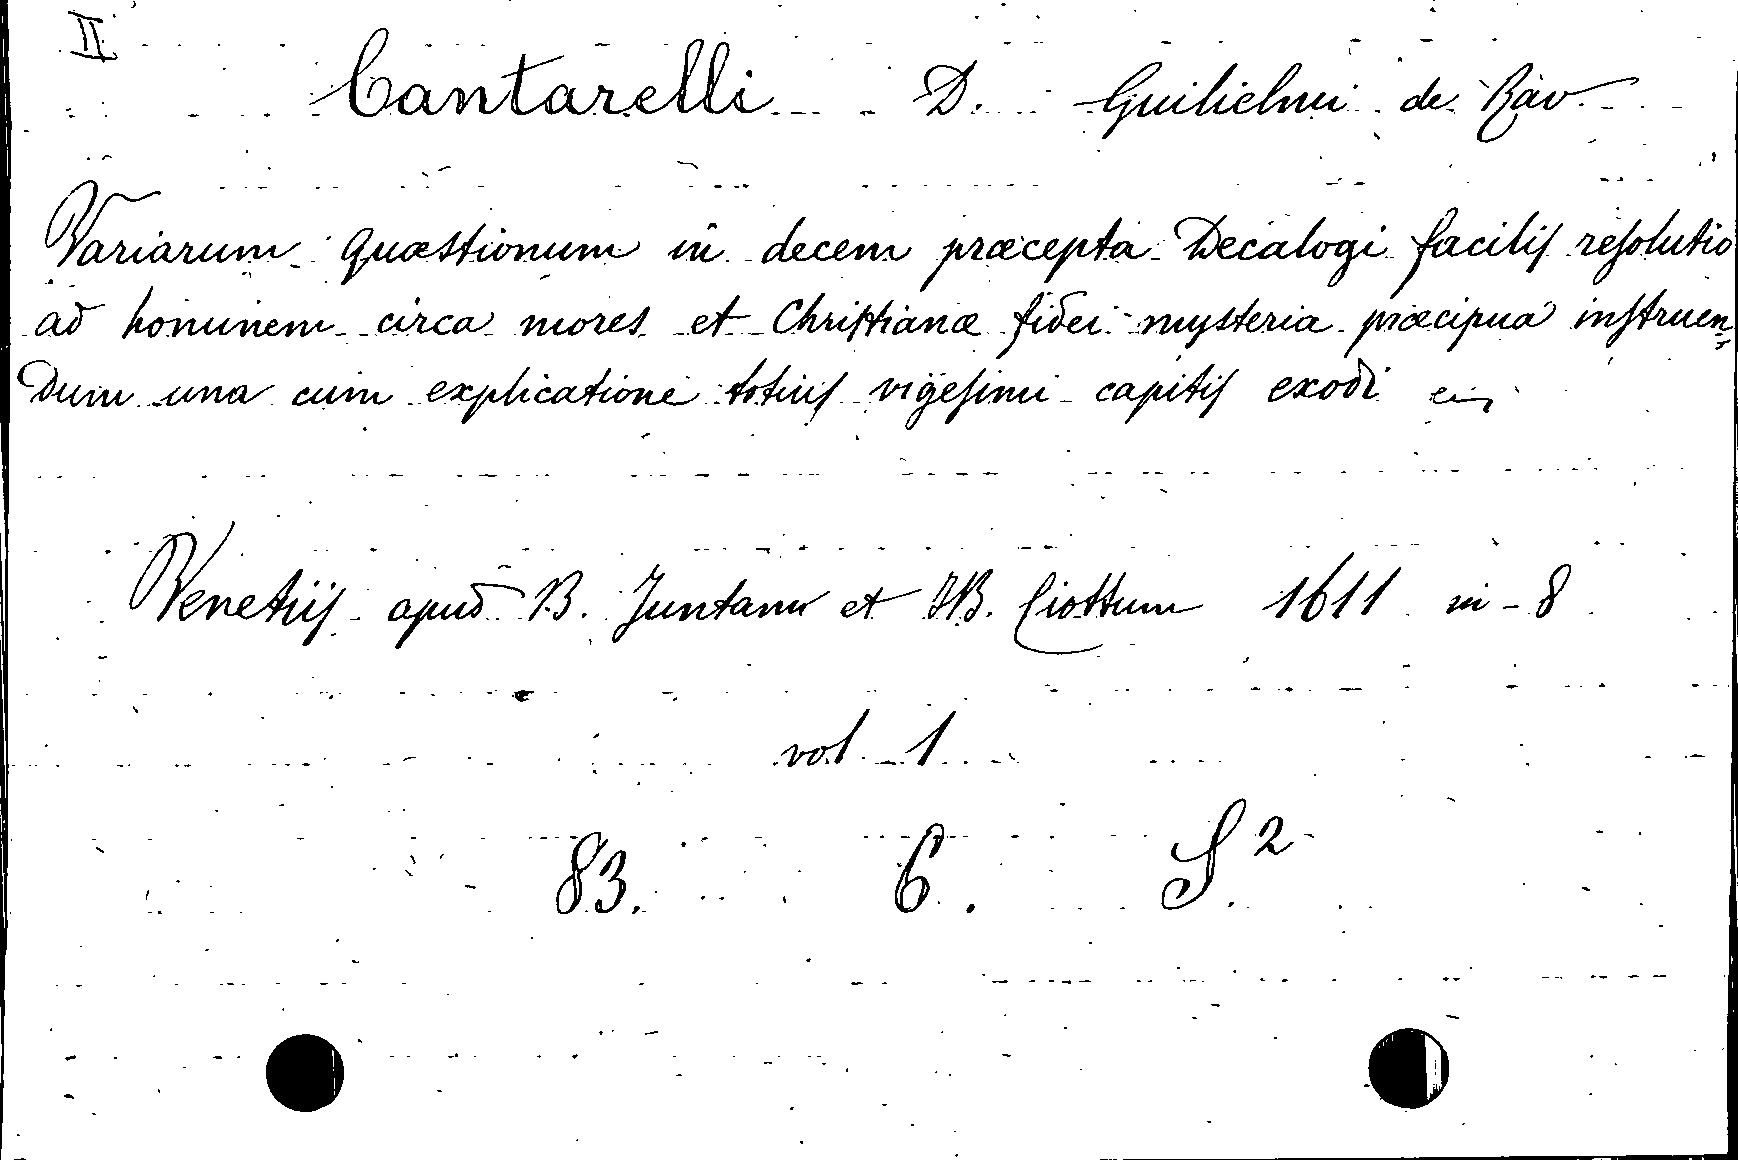 II
Cantarelli D. Guilielmi de Rav.
Variarum Quæstionum in decem præcepta Decalogi facilis resolutio
ad hominem circa mores et Christianæ fidei mysteria præcipua instruen=
dum una cum explicatione totius vigesimi capitis exodi
Venetiis apud B. Juntam et JB. Ciottum 1611 in-8
vol 1
83. 6. S.2